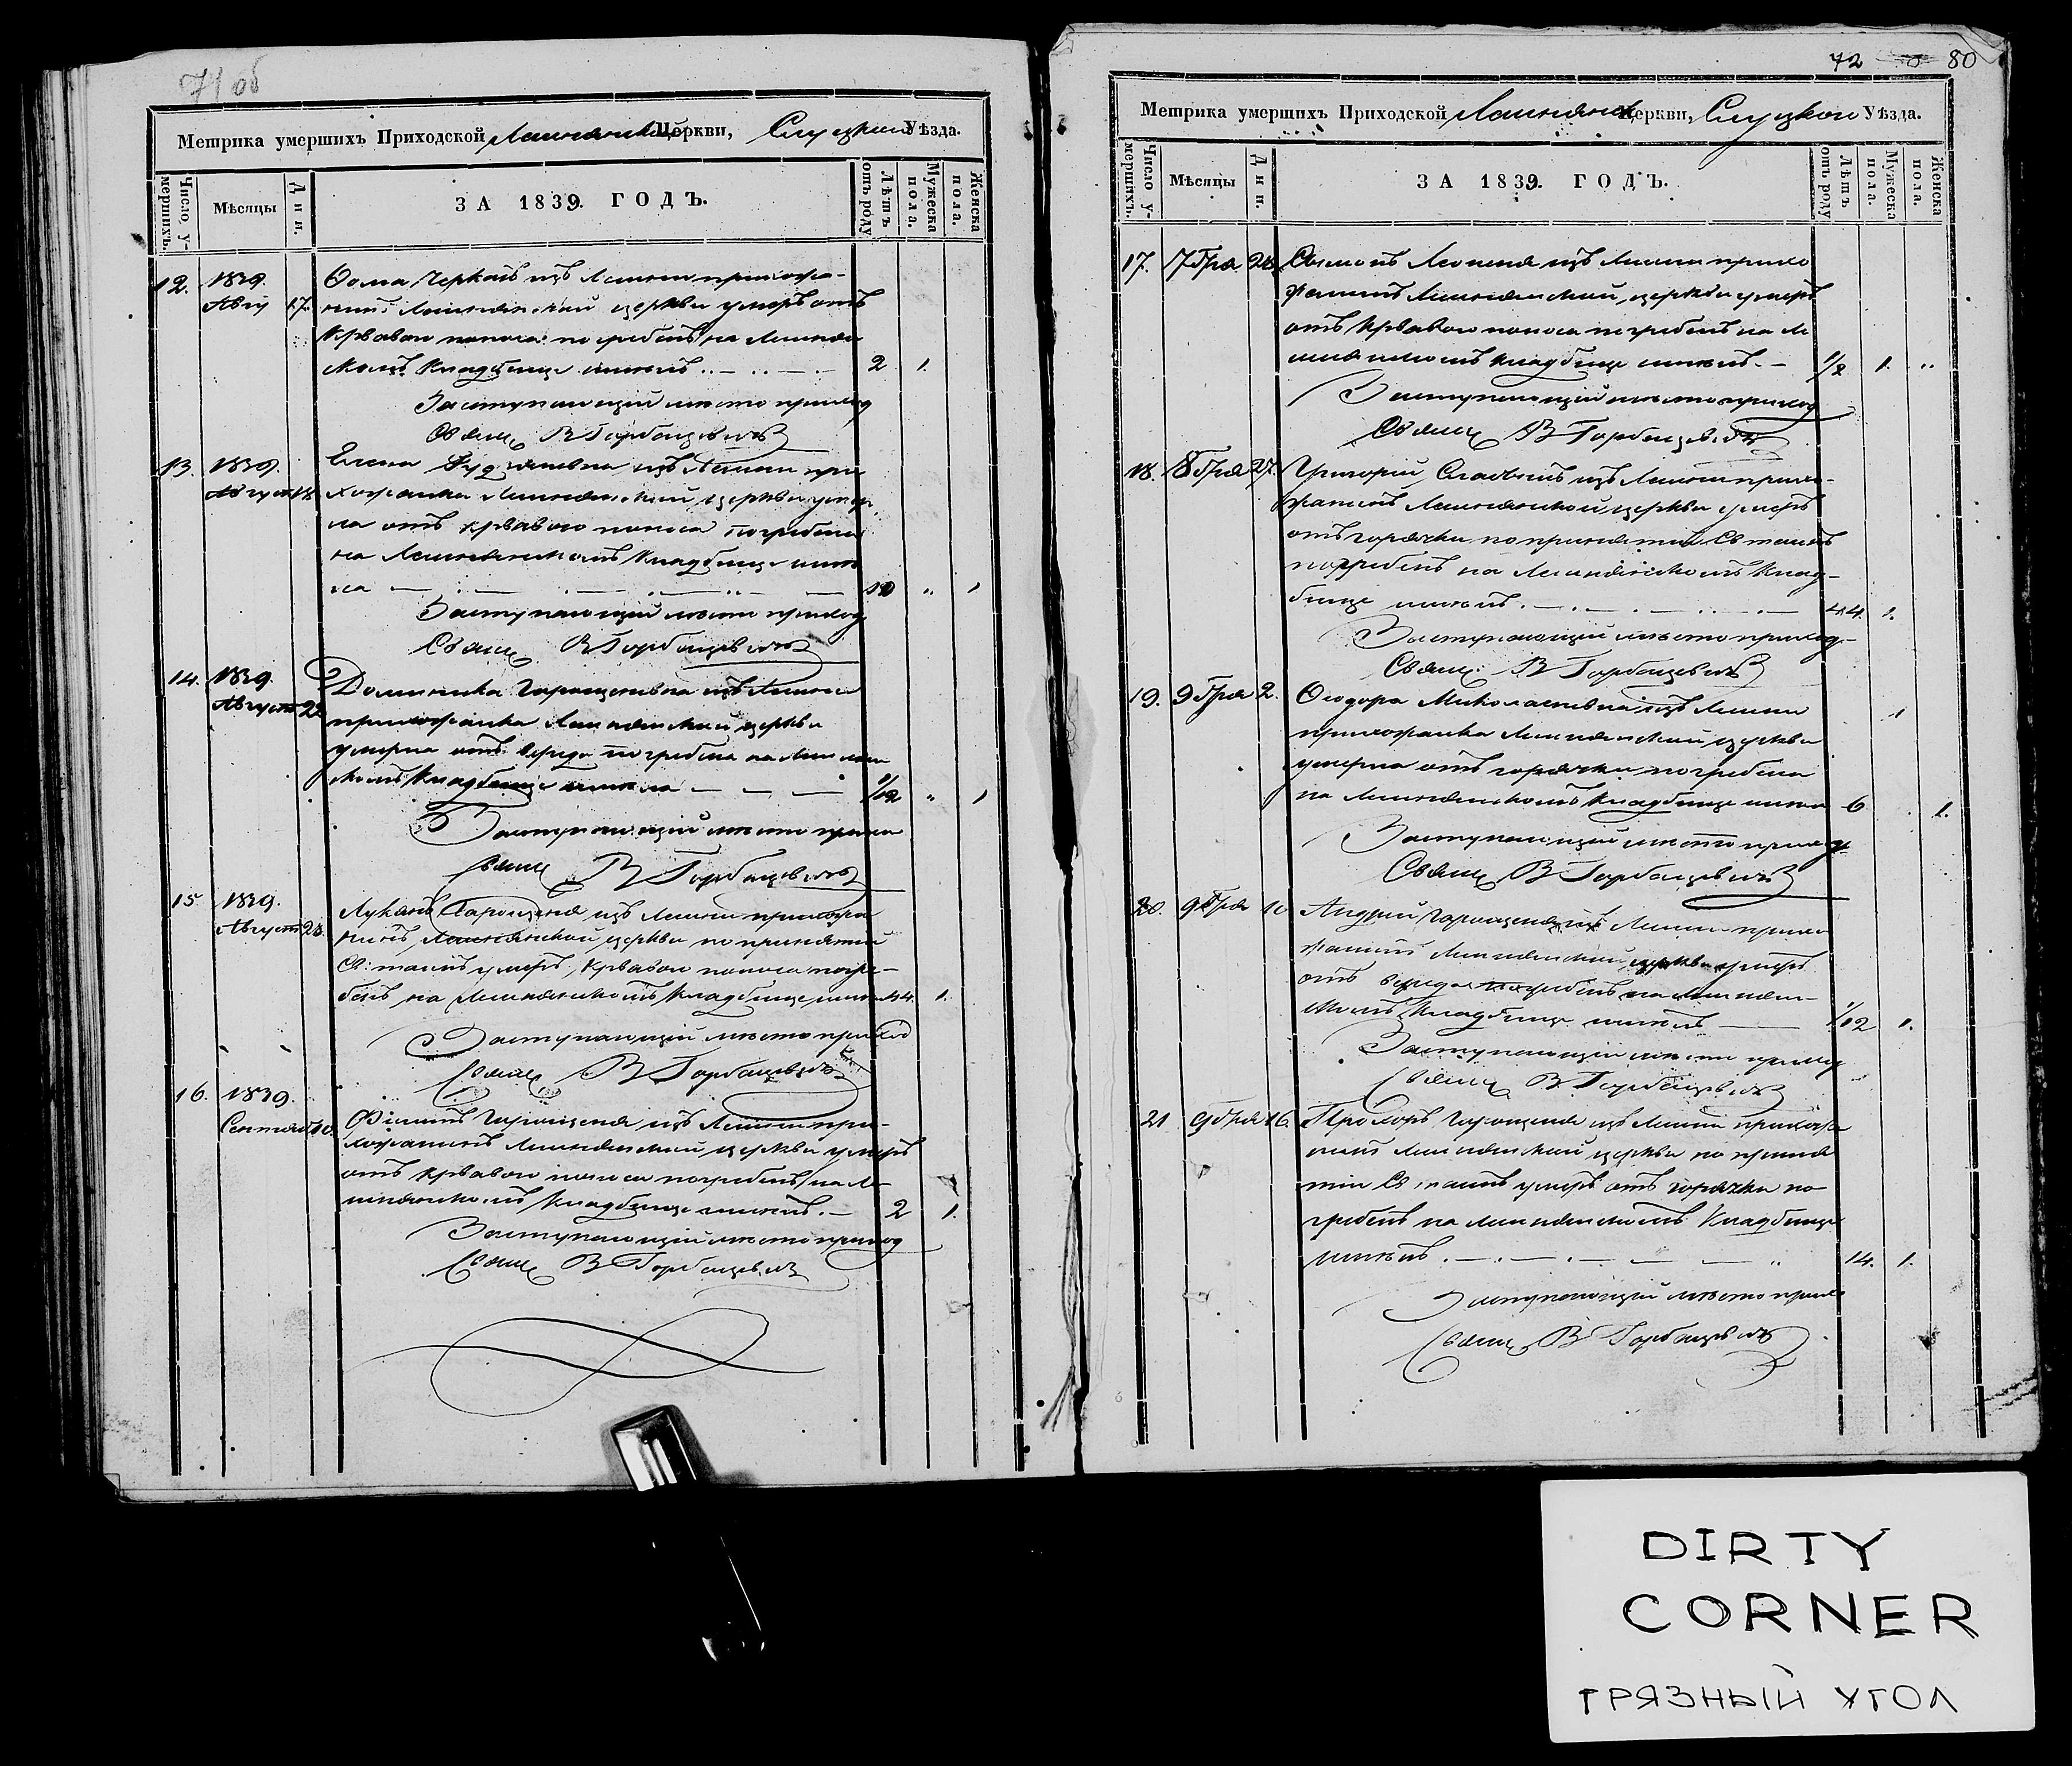 71 об
Метрика умершихъ Приходской Лешнянской Церкви, Слуцкаго Уѣзда.
Число умершихъ.
Мѣсяцы
Дни.
ЗА 1839. ГОДЪ.
Лѣтъ отъ роду
Мужеска пола.
Женска пола.
12. 1839. Августъ 17. Ѳома изъ Лешни прихожа-
нинъ Лешнянской церкви умеръ отъ
Крваваго поноса погребенъ на Лешнян
скомъ Кладбище имѣлъ 2 1.
Заступающій мѣсто приход
Свящ В Горбацевичъ
13. 1839. Августъ Елена изъ Лешни при
хожанка Лешнянской церкви умер
ла отъ крваваго поноса погребена
на Лешнянскомъ Кладбище имѣ
ла 10 " 1
Заступающій мѣсто приход
Свящ В Горбацевичъ
14. 1839. Августъ 22 Доминика Гарощеновна изъ Лешни
прихожанка Лешнянской церкви
умерла отъ вереда погребена на Лешнян
скомъ Кладбище имѣла 1/12 " 1
Заступающій мѣсто прихо
Свящ В Горбацевичъ
15 1839. Августъ 28. Лукянъ Гарощеня изъ Лешни прихожа
нинъ Лешнянской церкви по принятіи
Св: таинъ умеръ, Крваваго поноса погре-
бенъ на Лешнянскомъ Кладбище имѣ 44. 1.
Заступающій мѣсто приход
Свящ В Горбацевичъ
16. 1839. Сентяб 10. Гарощеня изъ Лешни при-
хожанинъ Лешнянской церкви умеръ
отъ крваваго поноса погребенъ на Ле-
шнянскомъ Кладбище имѣлъ. 2 1.
Заступающій мѣсто приход
Свящ В Горбацевичъ
72 80
Метрика умершихъ Приходской Лешнянск Церкви, Слуцкаго Уѣзда.
Число умершихъ.
Мѣсяцы
Дни.
ЗА 1839. ГОДЪ.
Лѣтъ отъ роду
Мужеска пола.
Женска пола.
17. 7бря 28 изъ Лешни прихо
жанинъ Лешнянской церкви умеръ
отъ Крваваго поноса погребенъ на Ле
шнянскомъ кладбище имѣлъ. 1/2 1. "
Заступающій мѣсто приход
Свящ В Горбацевичъ
18. 8бря 27. Григорій изъ Лешни прихо-
жанинъ Лешнянской церкви умеръ
отъ горячки по принятіи Св таинъ
погребенъ на Лешнянскомъ Клад-
бище имѣлъ. 44. 1.
Заступающій мѣсто приход-
Свящ: В Горбацевичъ
19. 9бря 2. Ѳеодора Миколаевна изъ Лешни 1
прихожанка Лешнянской церкви
умерла отъ горячки погребена
на Лешнянскомъ Кладбище имѣл 6 1.
Заступающій мѣсто приход
Свящ В Горбацевичъ
20. 9бря 10 Андрей Гарощеня изъ Лешни прихо
жанинъ Лешнянской церкви умеръ
отъ вереда погребенъ на Лешнян-
скомъ Кладбище имѣлъ 1/12 1.
Заступающій мѣсто приход
Свящ В Горбацевичъ
21 9бря 16. Прохоръ Гарощеня изъ Лешни прихожа
нинъ Лешнянской церкви по приня
тіи Св таинъ умеръ отъ горячки по
гребенъ на Лешнянскомъ Кладбище
имѣлъ. 14. 1.
Заступающій мѣсто прихо
Свящ В Горбацевичъ
DIRTY
CORNER
ГРЯЗНЫЙ УГОЛ